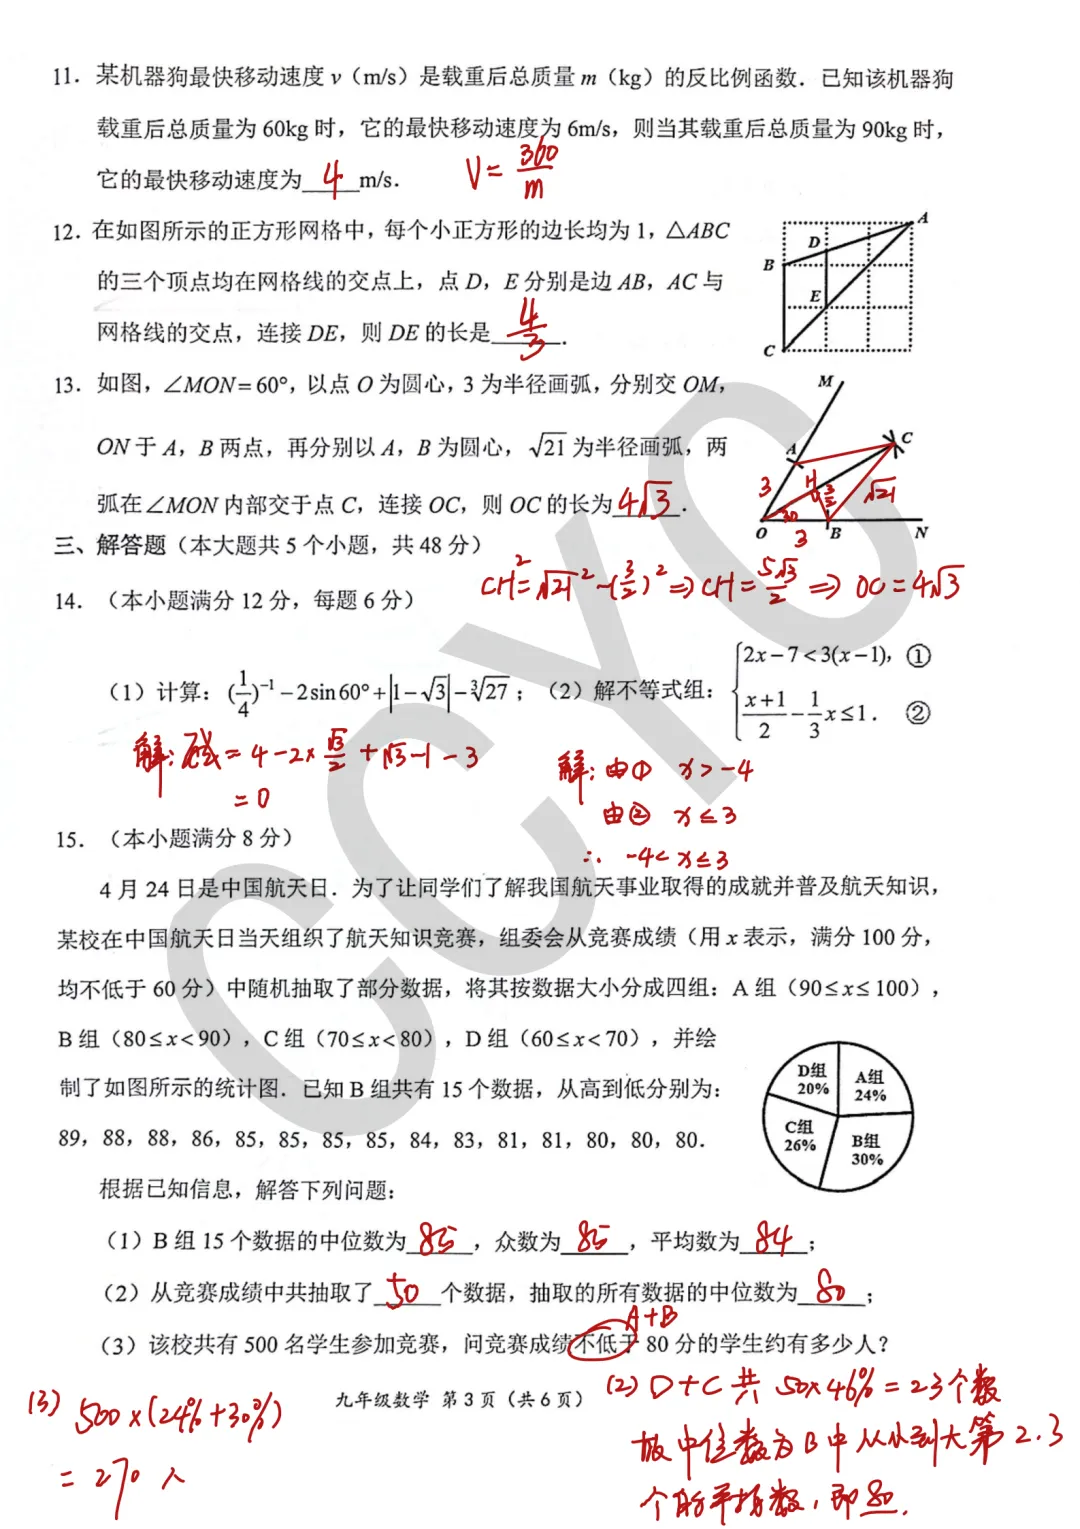 11. 某机器狗最快移动速度 v（m/s）是载重后总质量 m（kg）的反比例函数. 已知该机器狗
载重后总质量为 60kg 时，它的最快移动速度为 6m/s，则当其载重后总质量为 90kg 时，
它的最快移动速度为 4 m/s.
V = 360/m
12. 在如图所示的正方形网格中，每个小正方形的边长均为 1，△ABC
的三个顶点均在网格线的交点上，点 D，E 分别是边 AB，AC 与
网格线的交点，连接 DE，则 DE 的长是 4/3 .
A
D
B
E
C
13. 如图，∠MON=60°，以点 O 为圆心，3 为半径画弧，分别交 OM，
ON 于 A，B 两点，再分别以 A，B 为圆心，√21 为半径画弧，两
弧在∠MON 内部交于点 C，连接 OC，则 OC 的长为 4√3 .
M
A
C
H
3
3/2
√21
30
O
3
B
N
三、解答题（本大题共 5 个小题，共 48 分）
CH²=√21²-(3/2)²⇒CH=5√3/2⇒OC=4√3
14.（本小题满分 12 分，每题 6 分）
（1）计算：(1/4)⁻¹−2sin60°+|1−√3|−∛27；（2）解不等式组：{2x−7<3(x−1)，①
(x+1)/2−1/3x≤1. ②
解：原式=4-2×√3/2+√3-1-3
=0
解：由① x>-4
由② x≤3
∴ -4<x≤3
15.（本小题满分 8 分）
4 月 24 日是中国航天日. 为了让同学们了解我国航天事业取得的成就并普及航天知识，
某校在中国航天日当天组织了航天知识竞赛，组委会从竞赛成绩（用 x 表示，满分 100 分，
均不低于 60 分）中随机抽取了部分数据，将其按数据大小分成四组：A 组（90≤x≤100），
B 组（80≤x<90），C 组（70≤x<80），D 组（60≤x<70），并绘
制了如图所示的统计图. 已知 B 组共有 15 个数据，从高到低分别为：
89，88，88，86，85，85，85，85，84，83，81，81，80，80，80.
D组
20%
A组
24%
C组
26%
B组
30%
根据已知信息，解答下列问题：
（1）B 组 15 个数据的中位数为 85 ，众数为 85 ，平均数为 84 ；
（2）从竞赛成绩中共抽取了 50 个数据，抽取的所有数据的中位数为 80 ；
A+B
（3）该校共有 500 名学生参加竞赛，问竞赛成绩不低于 80 分的学生约有多少人？
九年级数学 第 3 页（共 6 页）
(3) 500×(24%+30%)
=270人
(2) D+C 共 50×46%=23个数
故中位数为B中从小到大第2.3
个的平均数，即80.
CCYC